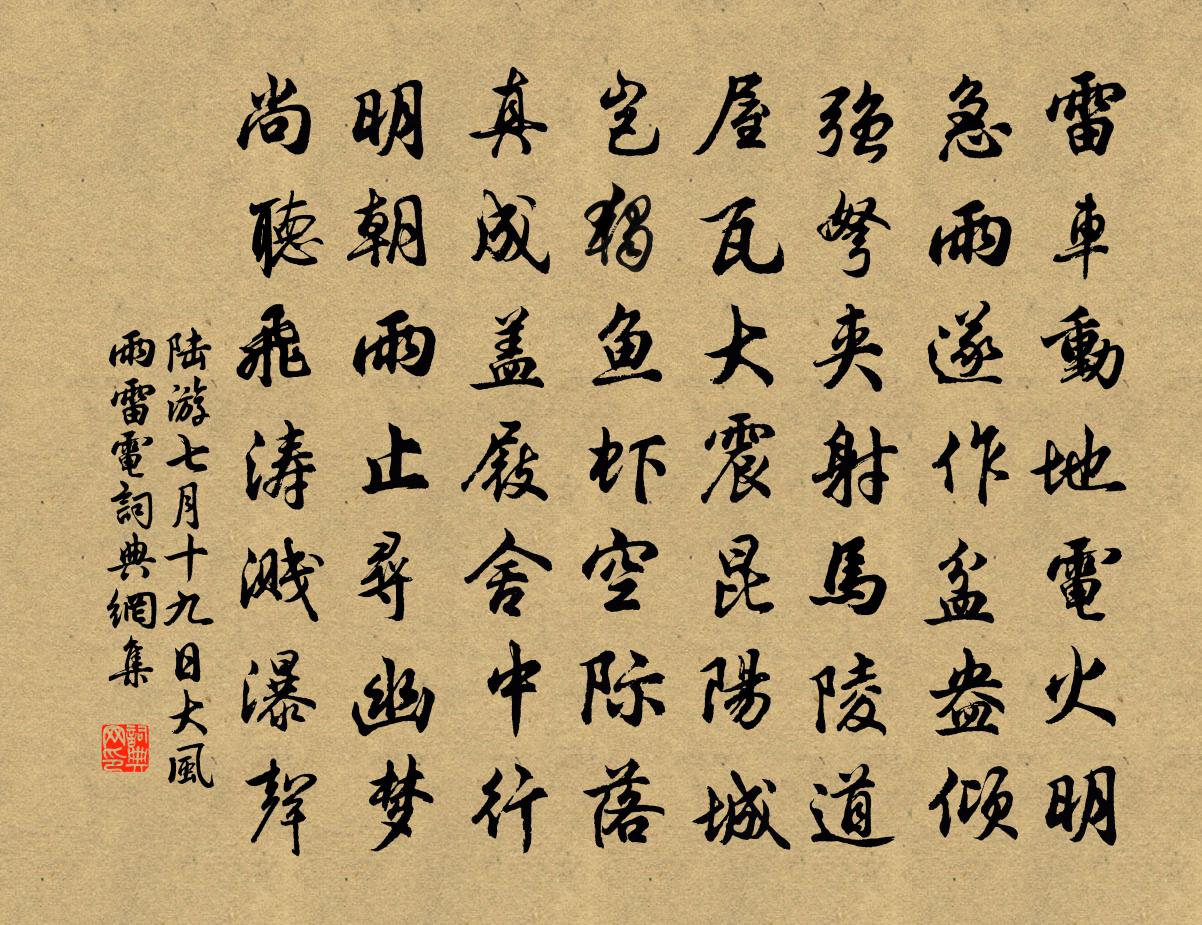 雷車動地電火明
急雨遂作盆盎傾
强弩夾射馬陵道
屋瓦大震昆陽城
岂獨鱼虾空际落
真成盖屐舍中行
明朝雨止尋幽梦
尚聽飛濤濺瀑聲
陆游七月十九日大風
雨雷電詞典網集
詞典
网印